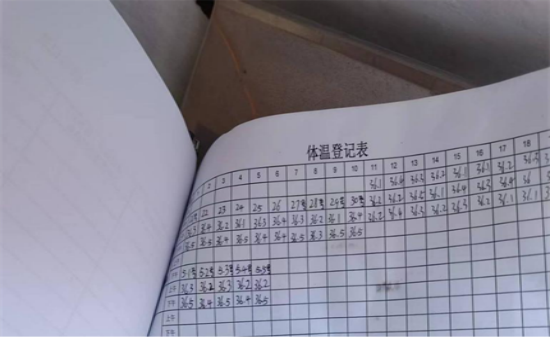 体温登记表
2 3 4 5 6 7 8 9 10 11 12 13 14 15 16 17 18
36.1 36.4 36.3 36.2 36.1 36.1 36.2 36.3
22 23 24 25 26 27号 28号 29号 30号 36.2 36.2 36.5 36.1 36.4 36.3 36.4 36
36.3 36.4 36.2 36.1 36.3 36.4 36.3 36.2 36.1 36.4 36.2 36.4 36.3 36.3 36.3 36.2 36.1 36.1
36.5 36.5 36.4 36.5 36.4 36.4 36.5 36.3 36.5 36.5
5.1号 5.2号 5.3号 5.4号 5.5号
上午 36.3 36.2 36.3 36.2 36.2
下午 36.5 36.4 36.5 36.4 36.5
上午
下午